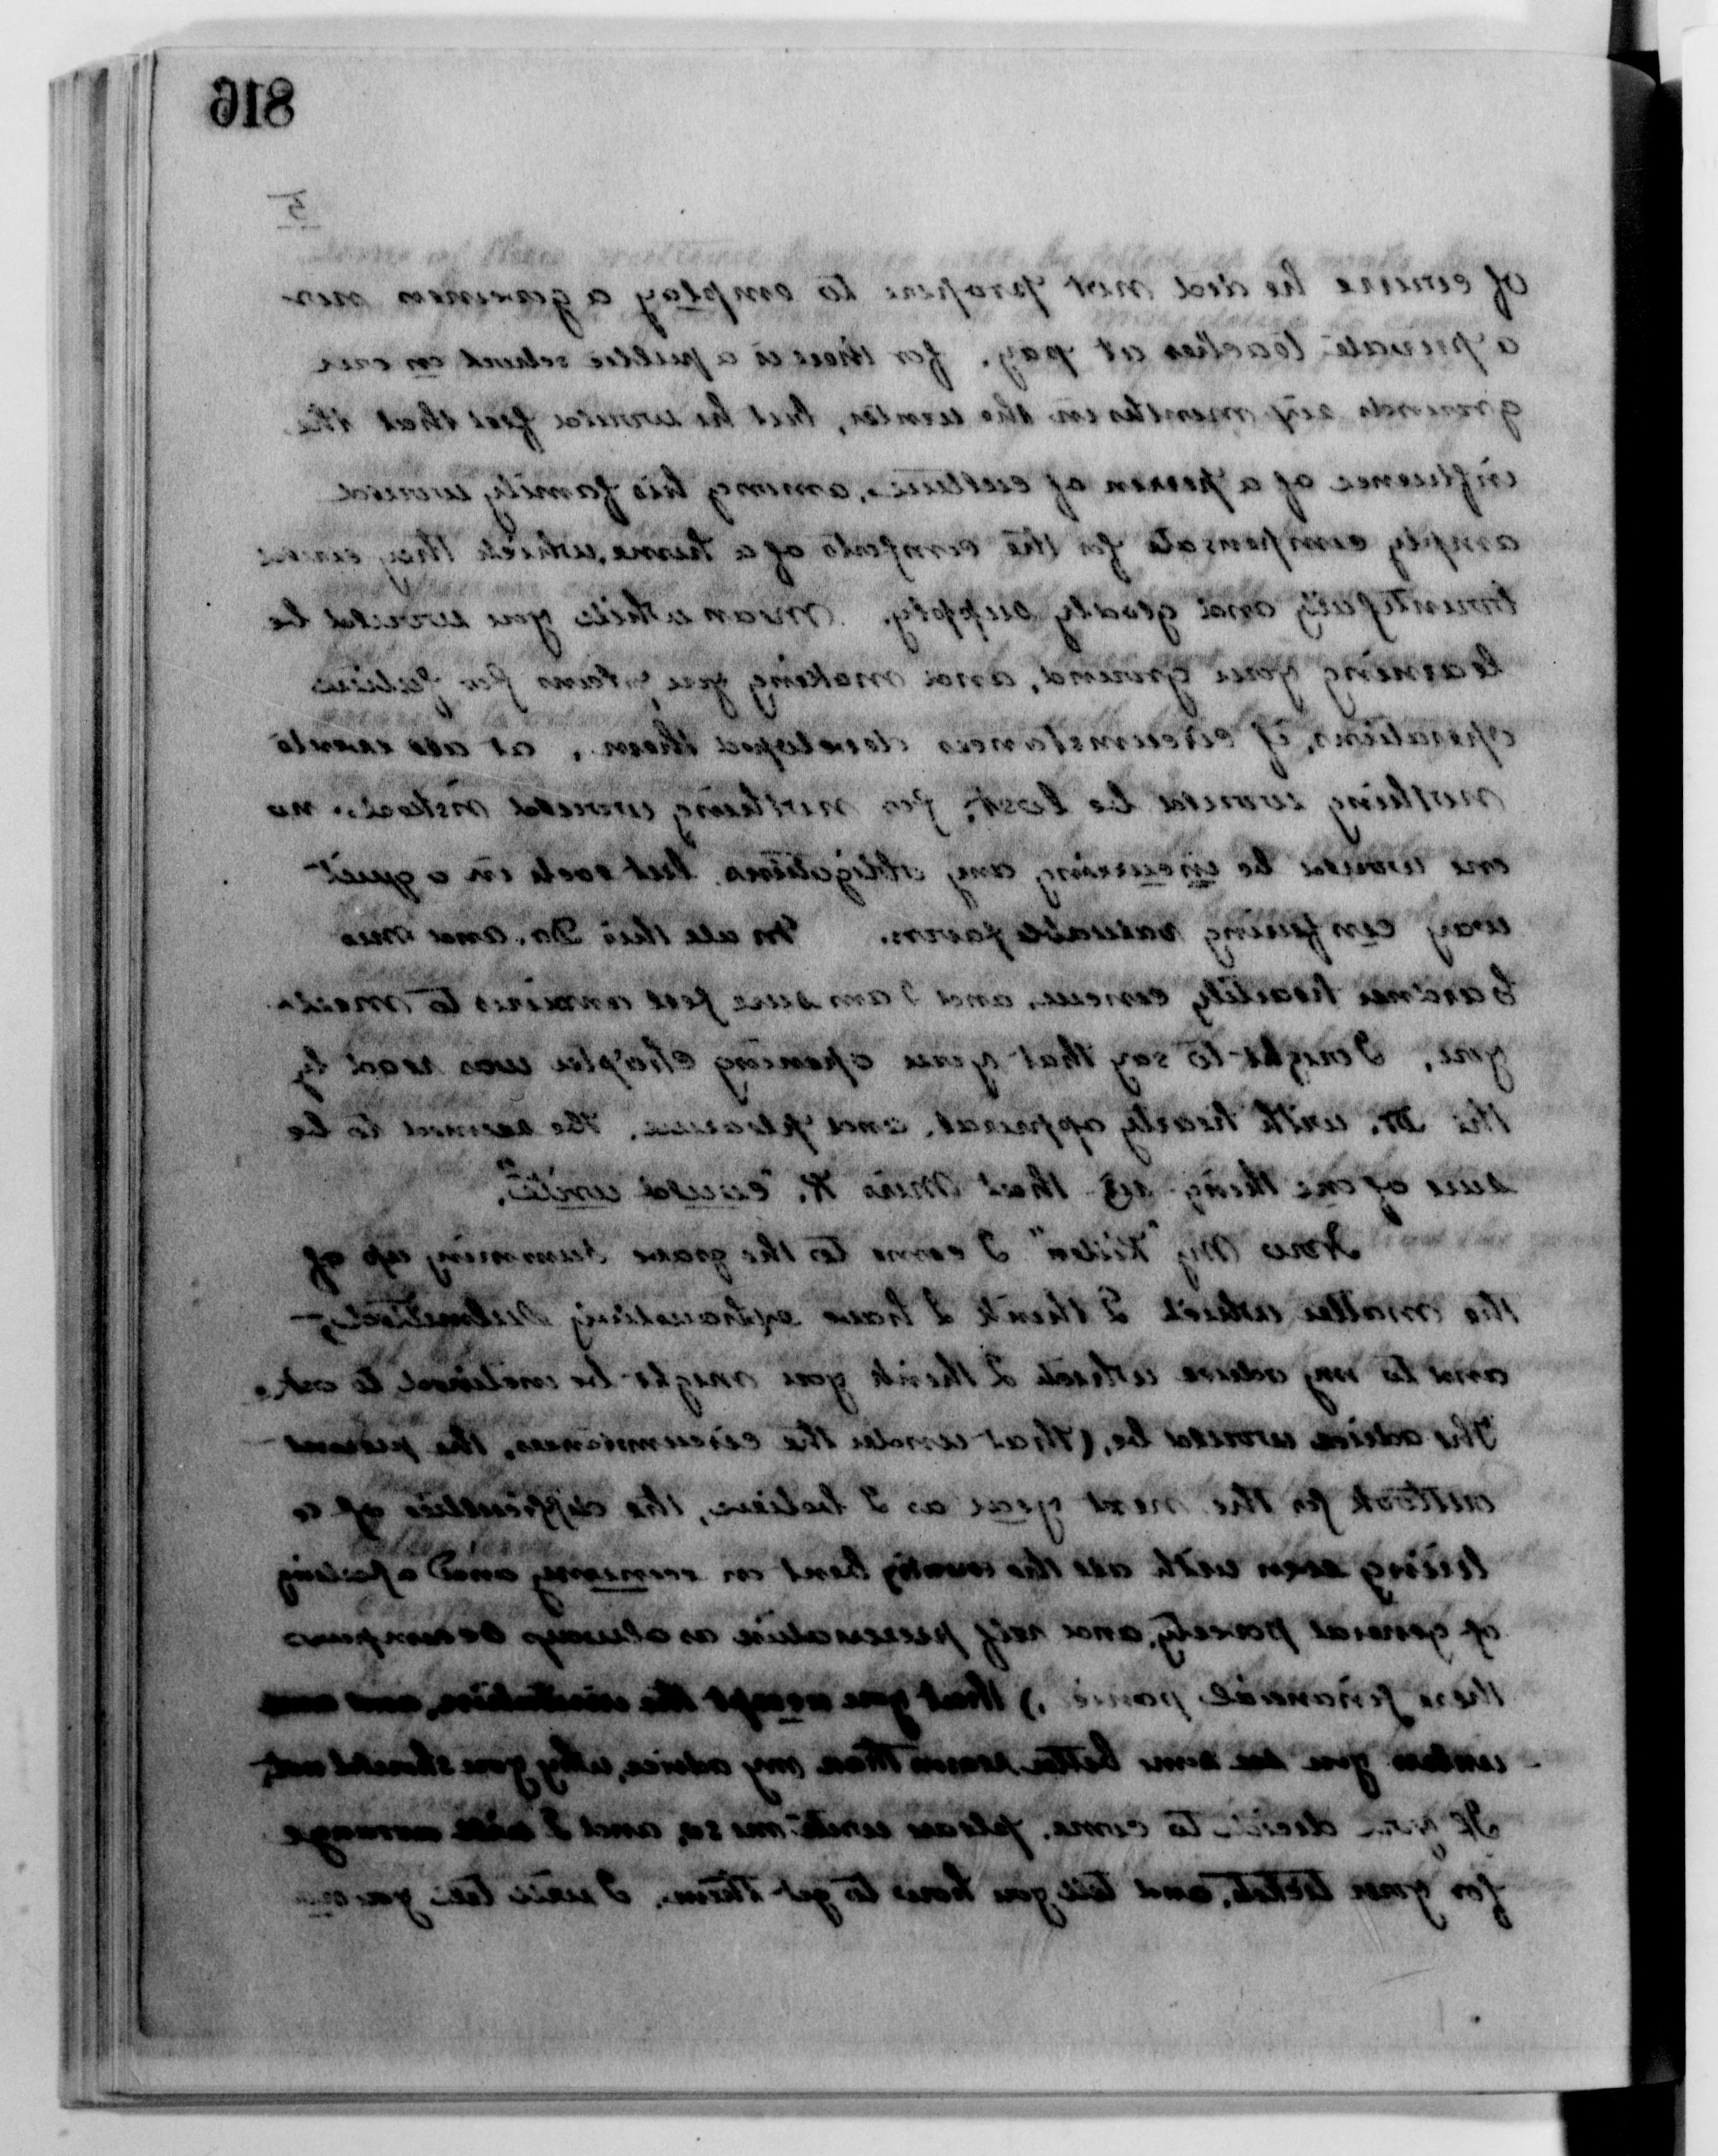 816
5
of course he did not propose to employ a governess nor
a private teacher at pay, for there is a public school on our
grounds six months in the winter, but he would feel that the
influence of a person of culture, among his family would
amply compensate for the comforts of a home, which they could
bountifully and gladly supply. Mean while you would be
learning your ground, and making your plans for future
operations, if circumstances developed them, at all events
nothing would be lost, for nothing would risked. no
one would be incurring any obligations, but each in a quiet
way conferring valuable favors. In all this Dr. and Mrs
Gardner heartily concur, and I am sure feel anxious to meet
you, I ought to say that your opening chapter was read by
the Dr. with hearty approval, and pleasure. He seemed to be
sure of one thing viz that Miss K. "could write".
Now my "Kitten" I come to the grave summing up of
the matter which I think I have exhaustively submitted,
and to my advice which I think you might be inclined to ask.
The advice would be, (that under the circumstances, the present
outlook for the next year as I believe, the difficulties of a
living even with all the country bent on economy and a feeling
of general poverty, and self preservation as always accompanies
these financial panics,) that you accept the invitation, and come
unless you see some better reason than my advice, why you should not,
If you decide to come, please write me so, and I will arrange
for your tickets, and tell you how to get them. I will tell you